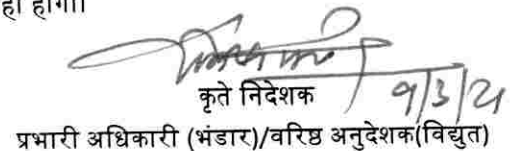 हा होगा।
कृते निदेशक 9/3/21
प्रभारी अधिकारी (भंडार)/वरिष्ठ अनुदेशक(विद्युत)